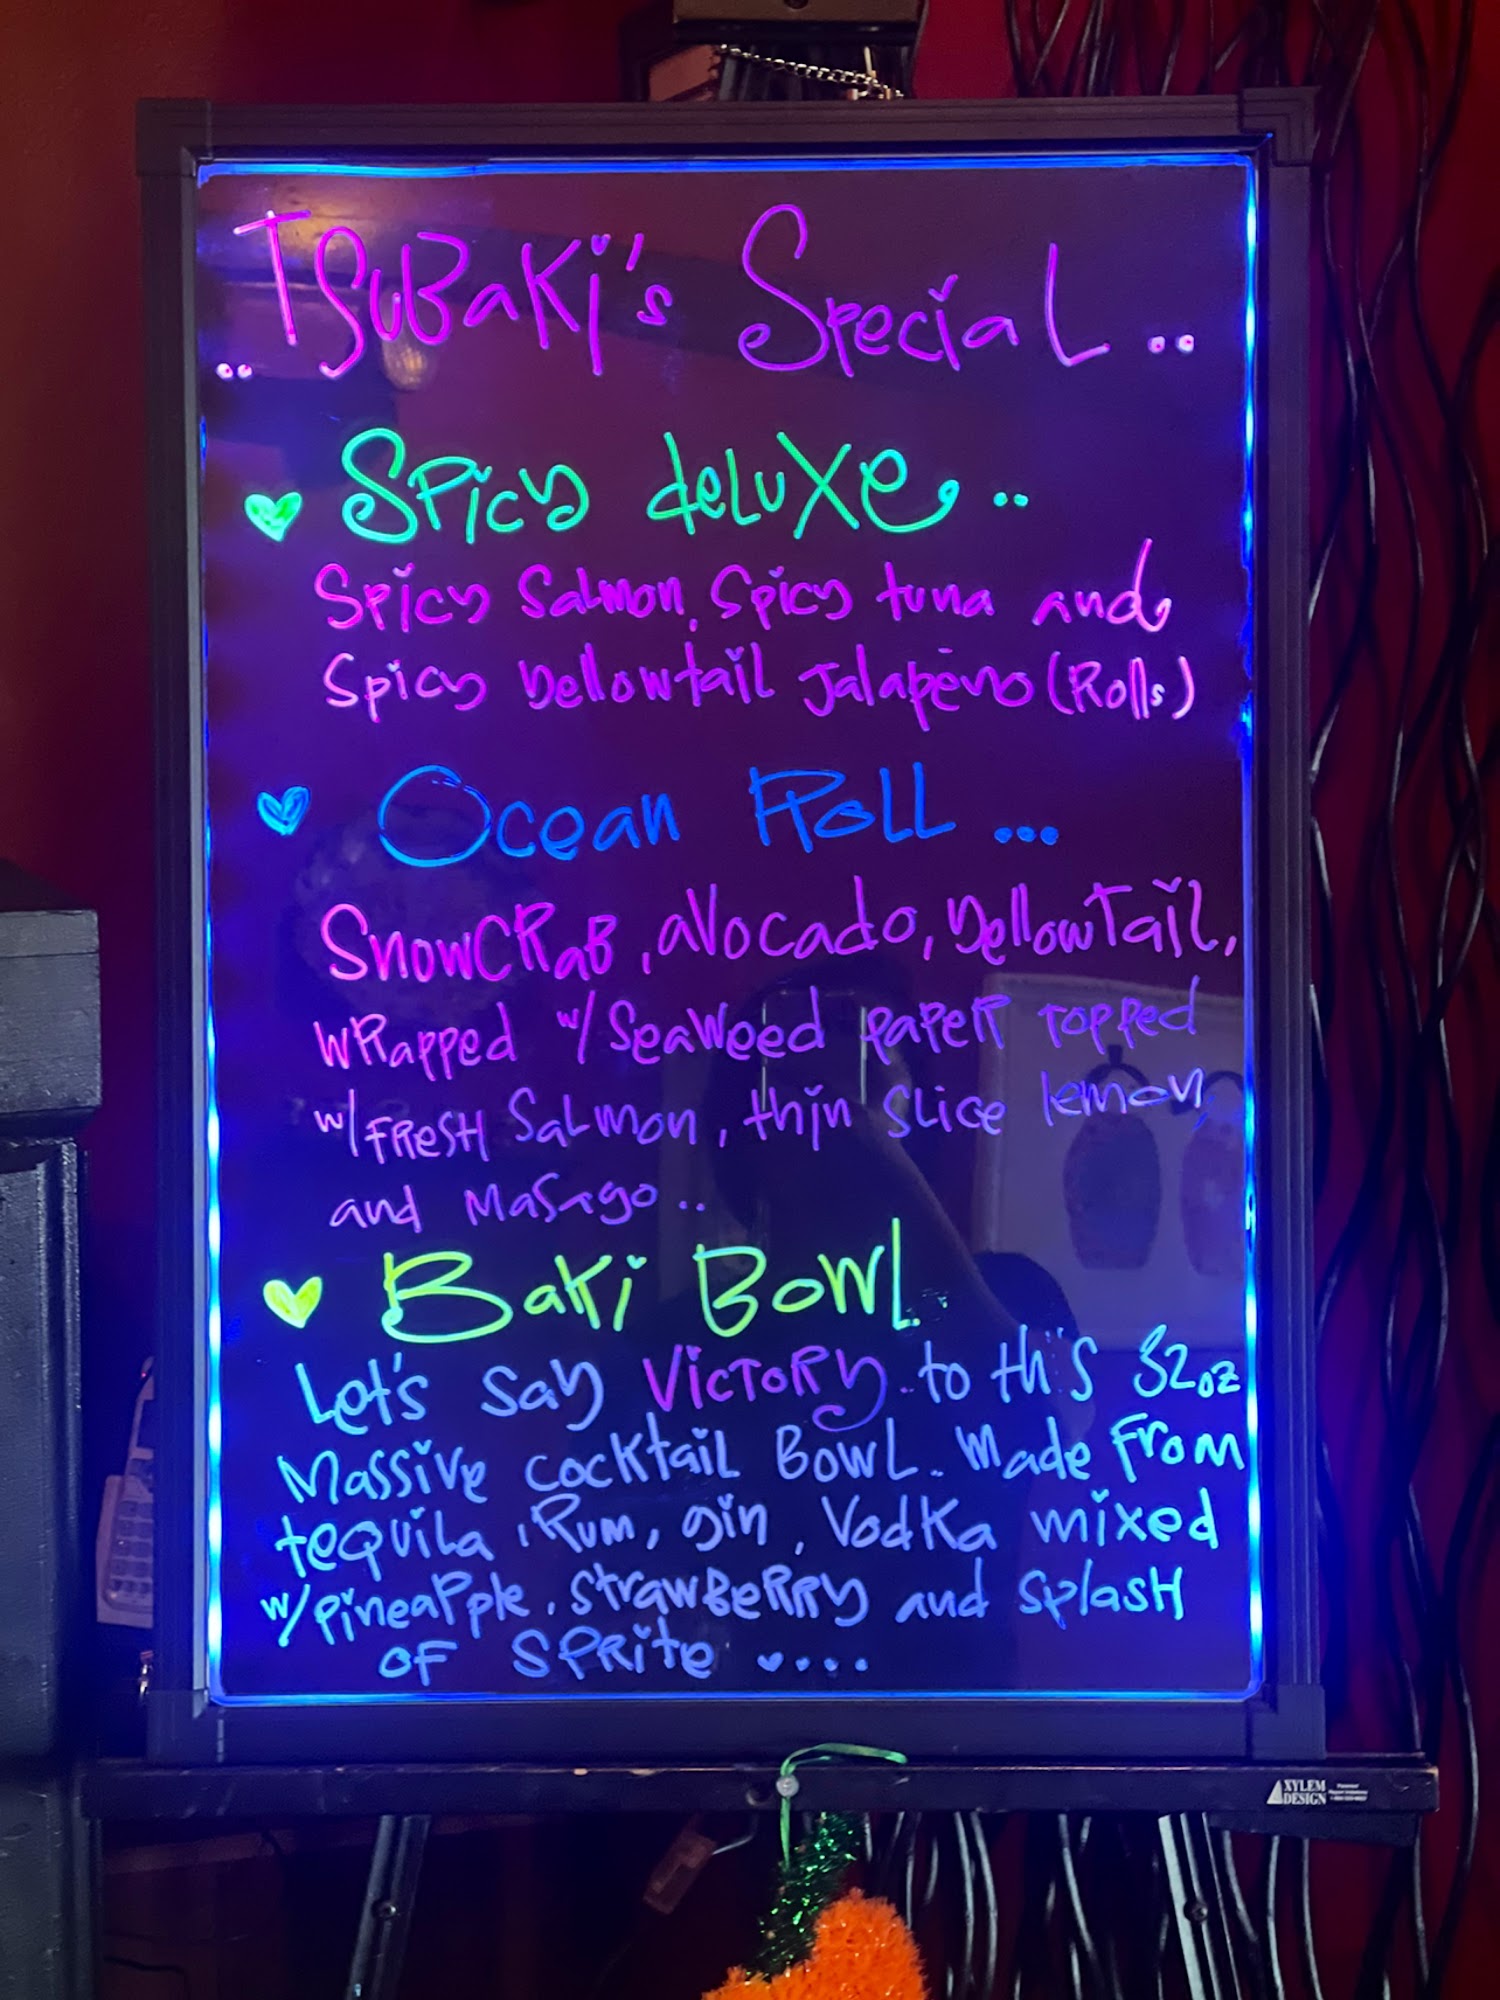 ..Tsubaki's Special..
Spicy deluxe..
Spicy Salmon, Spicy tuna and
Spicy Yellowtail Jalapeño (Rolls)
Ocean Roll...
SnowCRaB, avocado, Yellowtail,
wRapped w/ Seaweed papeR topped
w/ FResH Salmon, thin slice lemon,
and Masago..
Baki Bowl
Let's say VictoRy to this 32oz
Massive cocktail Bowl. Made From
tequila, Rum, gin, Vodka mixed
w/ pineapple, strawBeRRy and splasH
oF SpRite ....
XYLEM
DESIGN